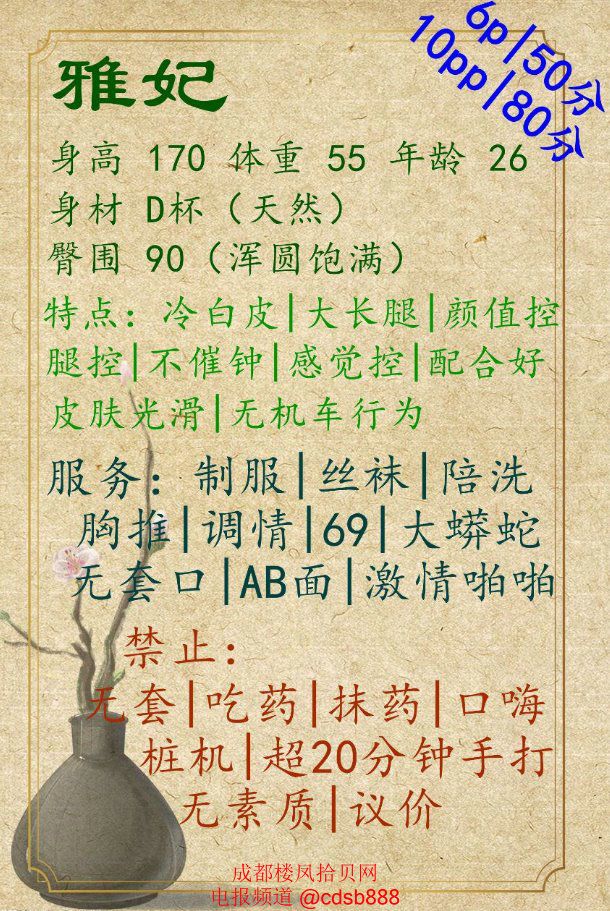 雅妃
6p|50分
10pp|80分
身高 170 体重 55 年龄 26
身材 D杯（天然）
臀围 90（浑圆饱满）
特点：冷白皮|大长腿|颜值控
腿控|不催钟|感觉控|配合好
皮肤光滑|无机车行为
服务：制服|丝袜|陪洗
胸推|调情|69|大蟒蛇
无套口|AB面|激情啪啪
禁止：
无套|吃药|抹药|口嗨
桩机|超20分钟手打
无素质|议价
成都楼凤拾贝网
电报频道 @cdsb888